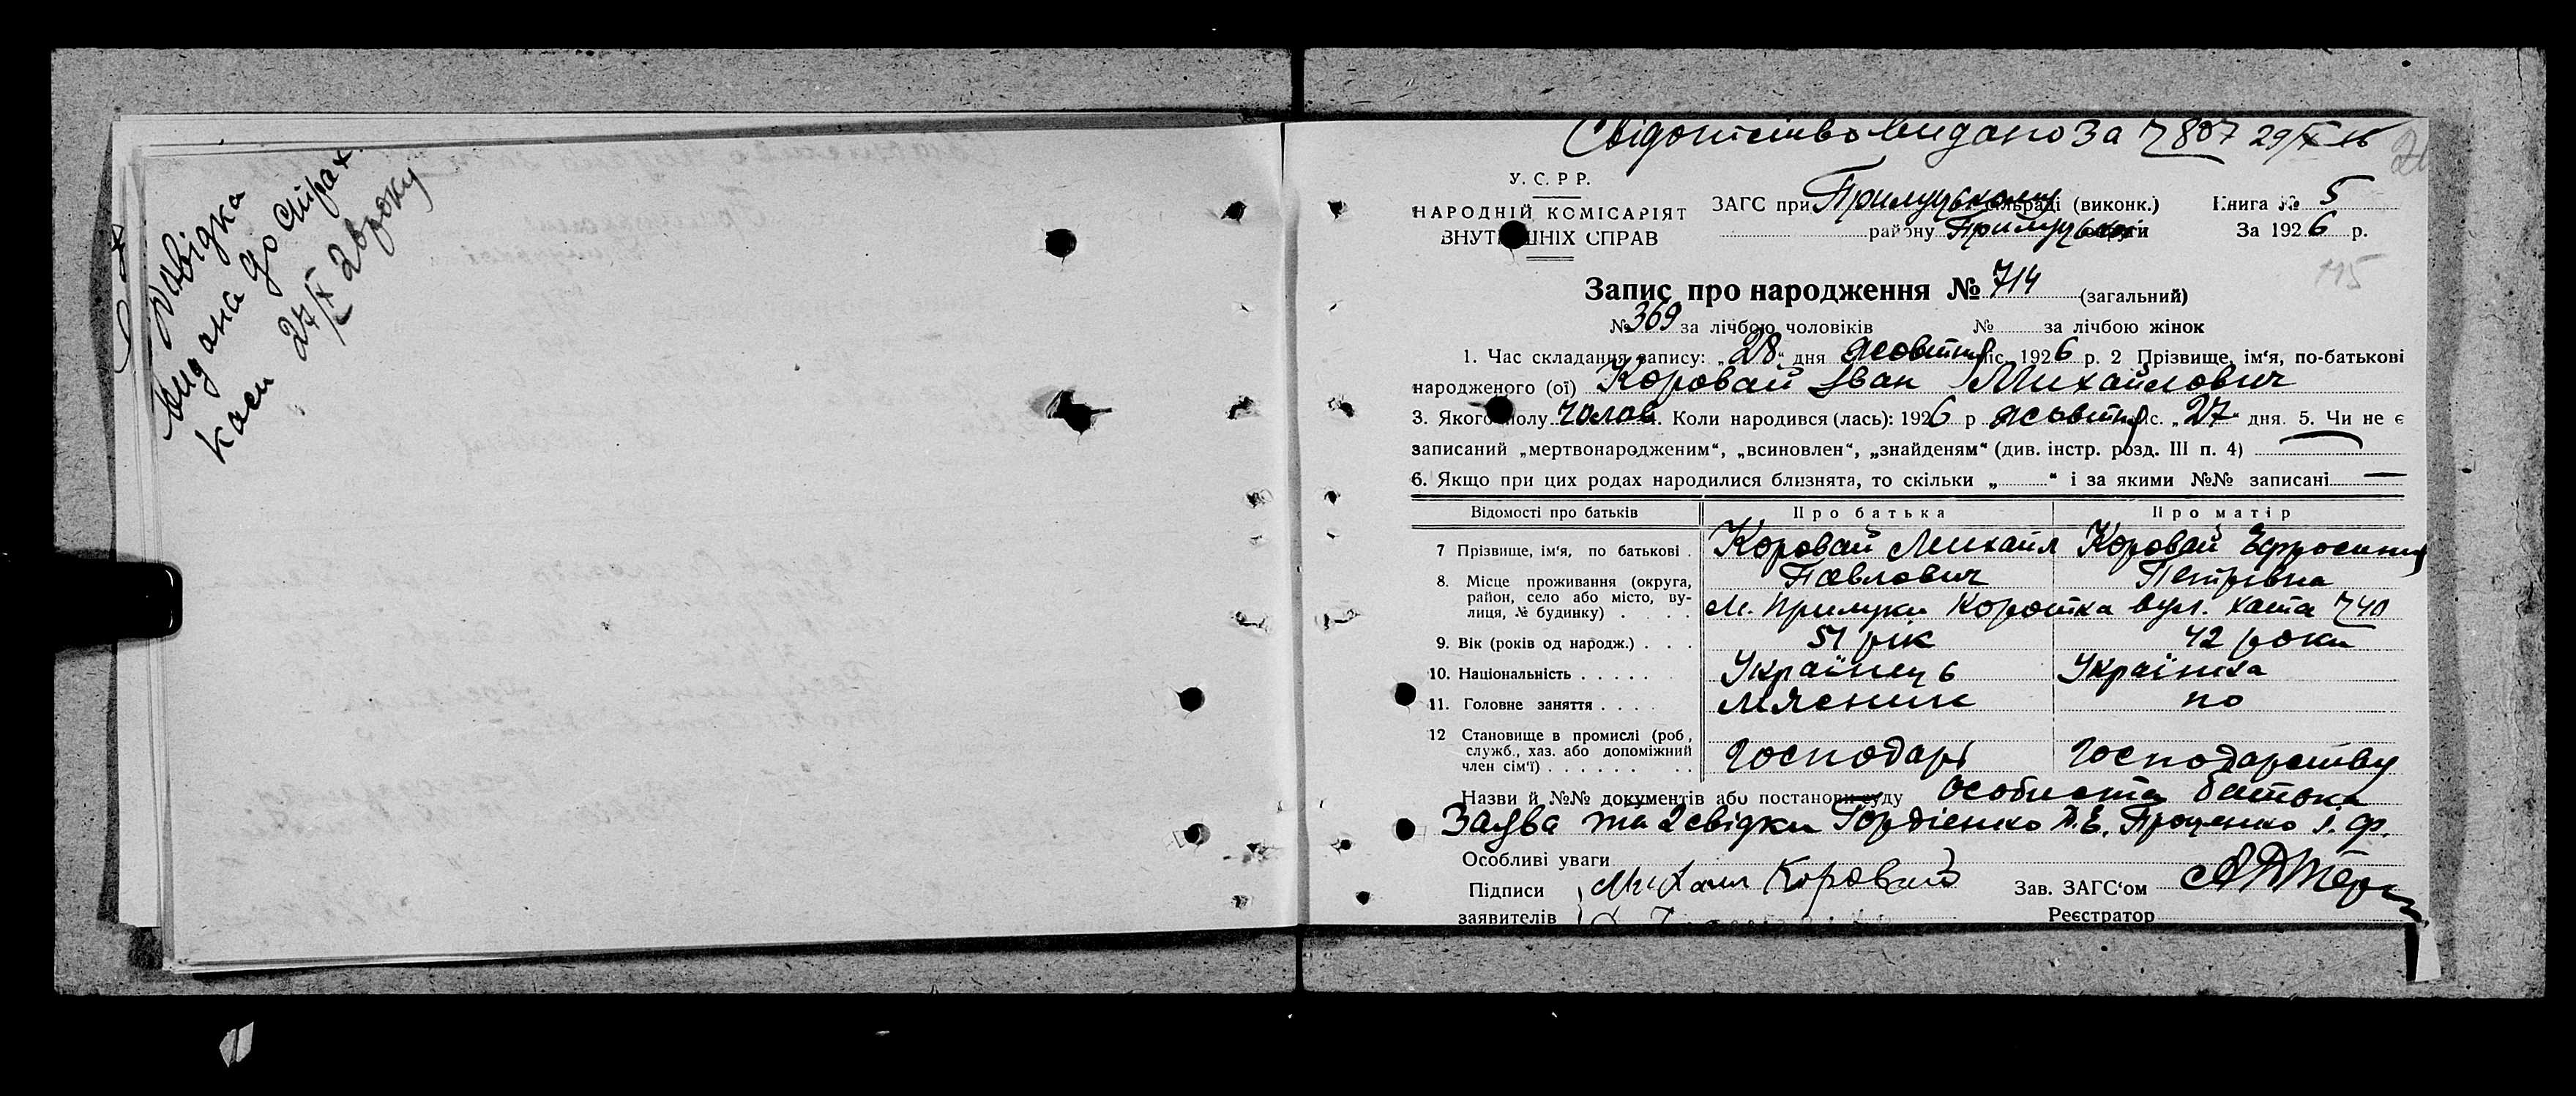 Довідка
видана до страх
каси 27/X 26 року
Свідоцтво видано За 7807 29/X 26
У. С. Р Р.
НАРОДНІЙ КОМІСАРІЯТ
ВНУТРІШНІХ СПРАВ
ЗАГС при Прилуцькому сільраді (виконк.)
району Прилуцької округи
Книга № 5
За 1926 р.
115
Запис про народження № 714 (загальний)
№ 369 за лічбою чоловіків № за лічбою жінок
1. Час складання запису: „28“ дня жовтня міс. 1926 р. 2 Прізвище, ім‘я, по-батькові
народженого (ої) Коровай Іван Михайлович
3. Якого полу чолов. 4. Коли народився (лась): 1926 р жовтня міс. „27“ дня. 5. Чи не є
записаний „мертвонародженим“, „всиновлен“, „знайденям“ (див. інстр. розд. III п. 4) —
6. Якщо при цих родах народилися близнята, то скільки „ “ і за якими №№ записані —
Відомості про батьків Про батька Про матір
7 Прізвище, ім‘я, по батькові . Коровай Михайл Коровай Ефросиния
Павлович Петрівна
8. Місце проживання (округа, район, село або місто, вулиця, № будинку) . . . . м. Прилуки Коротка вул. хата 740
9. Вік (років од народж.) . . . 51 рік 42 роки
10. Національність . . . . . Українець Українка
11. Головне заняття . . . . Мясник по
12 Становище в промислі (роб, служб., хаз. або допоміжний член сім‘ї) . . . . . . . . Господарь Господарству
Назви й №№ документів або постанови суду Особиста батька
Заява та 2 свідки Гордієнко Т. Е. Проценко І. Ф.
Особливі уваги
Підписи Михаил Коровай Зав. ЗАГС‘ом
заявителів Реєстратор